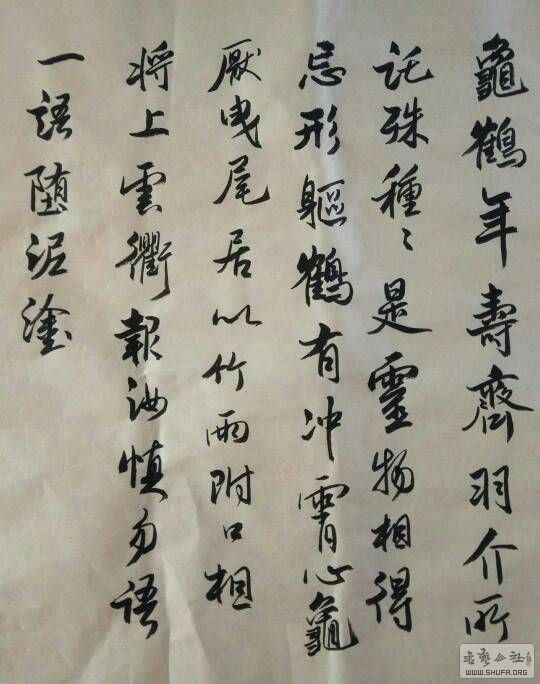 龜鶴年壽齊羽介所
託殊種〻是靈物相得
忌形軀鶴有冲霄心龜
厭曳尾居以竹兩附口相
將上雲衢報汝慎勿語
一語随泥塗
书艺公社
WWW.SHUFA.ORG